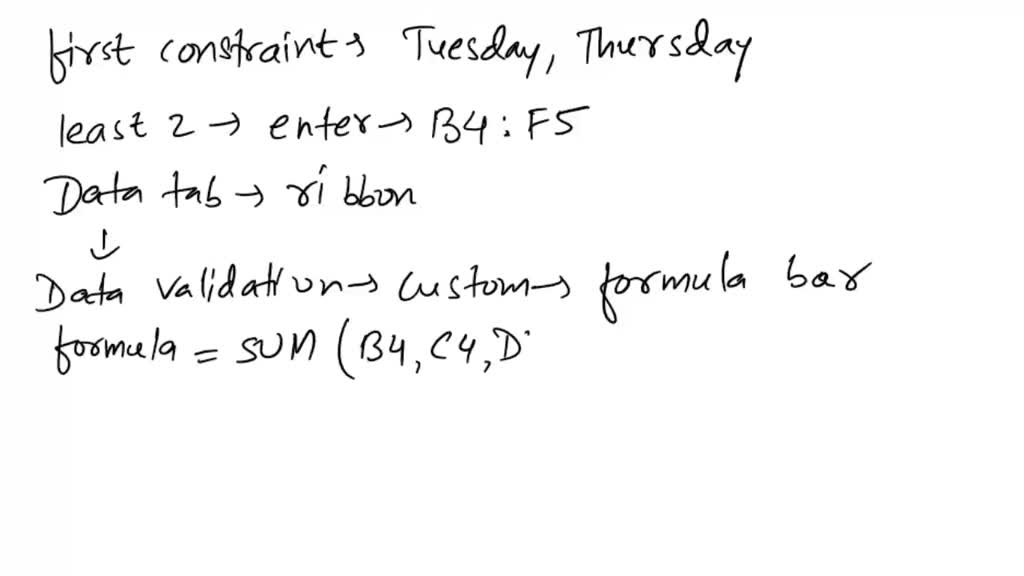 first constraints Tuesday, Thursday
least 2 → enter → B4 : F5
Data tab → ribbon
↓
Data validation → custom → formula bar
formula = SUM (B4, C4, D